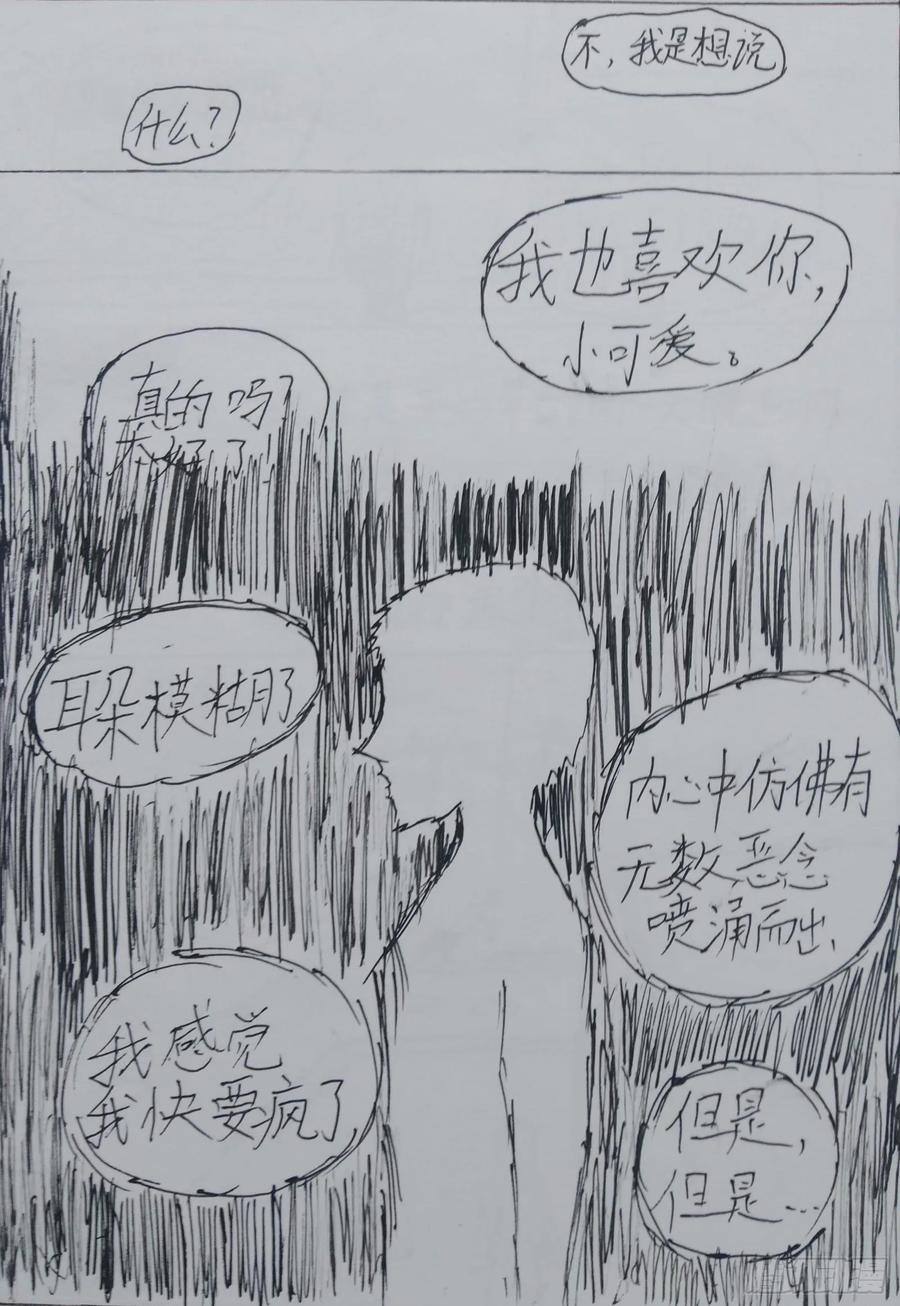 不，我是想说
什么？
我也喜欢你，
小可爱。
真的吗？
太好了
耳朵模糊了
内心中仿佛有
无数恶念
喷涌而出、
我感觉
我快要疯了
但是，
但是…